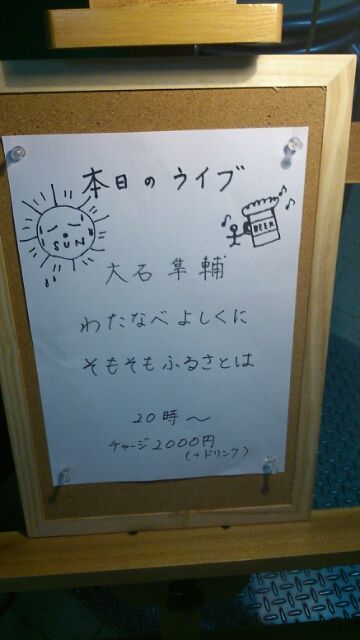 本日のライブ
SUN
BEER
大石隼輔
わたなべよしくに
そもそもふるさとは
20時〜
チャージ2000円
(+ドリンク)